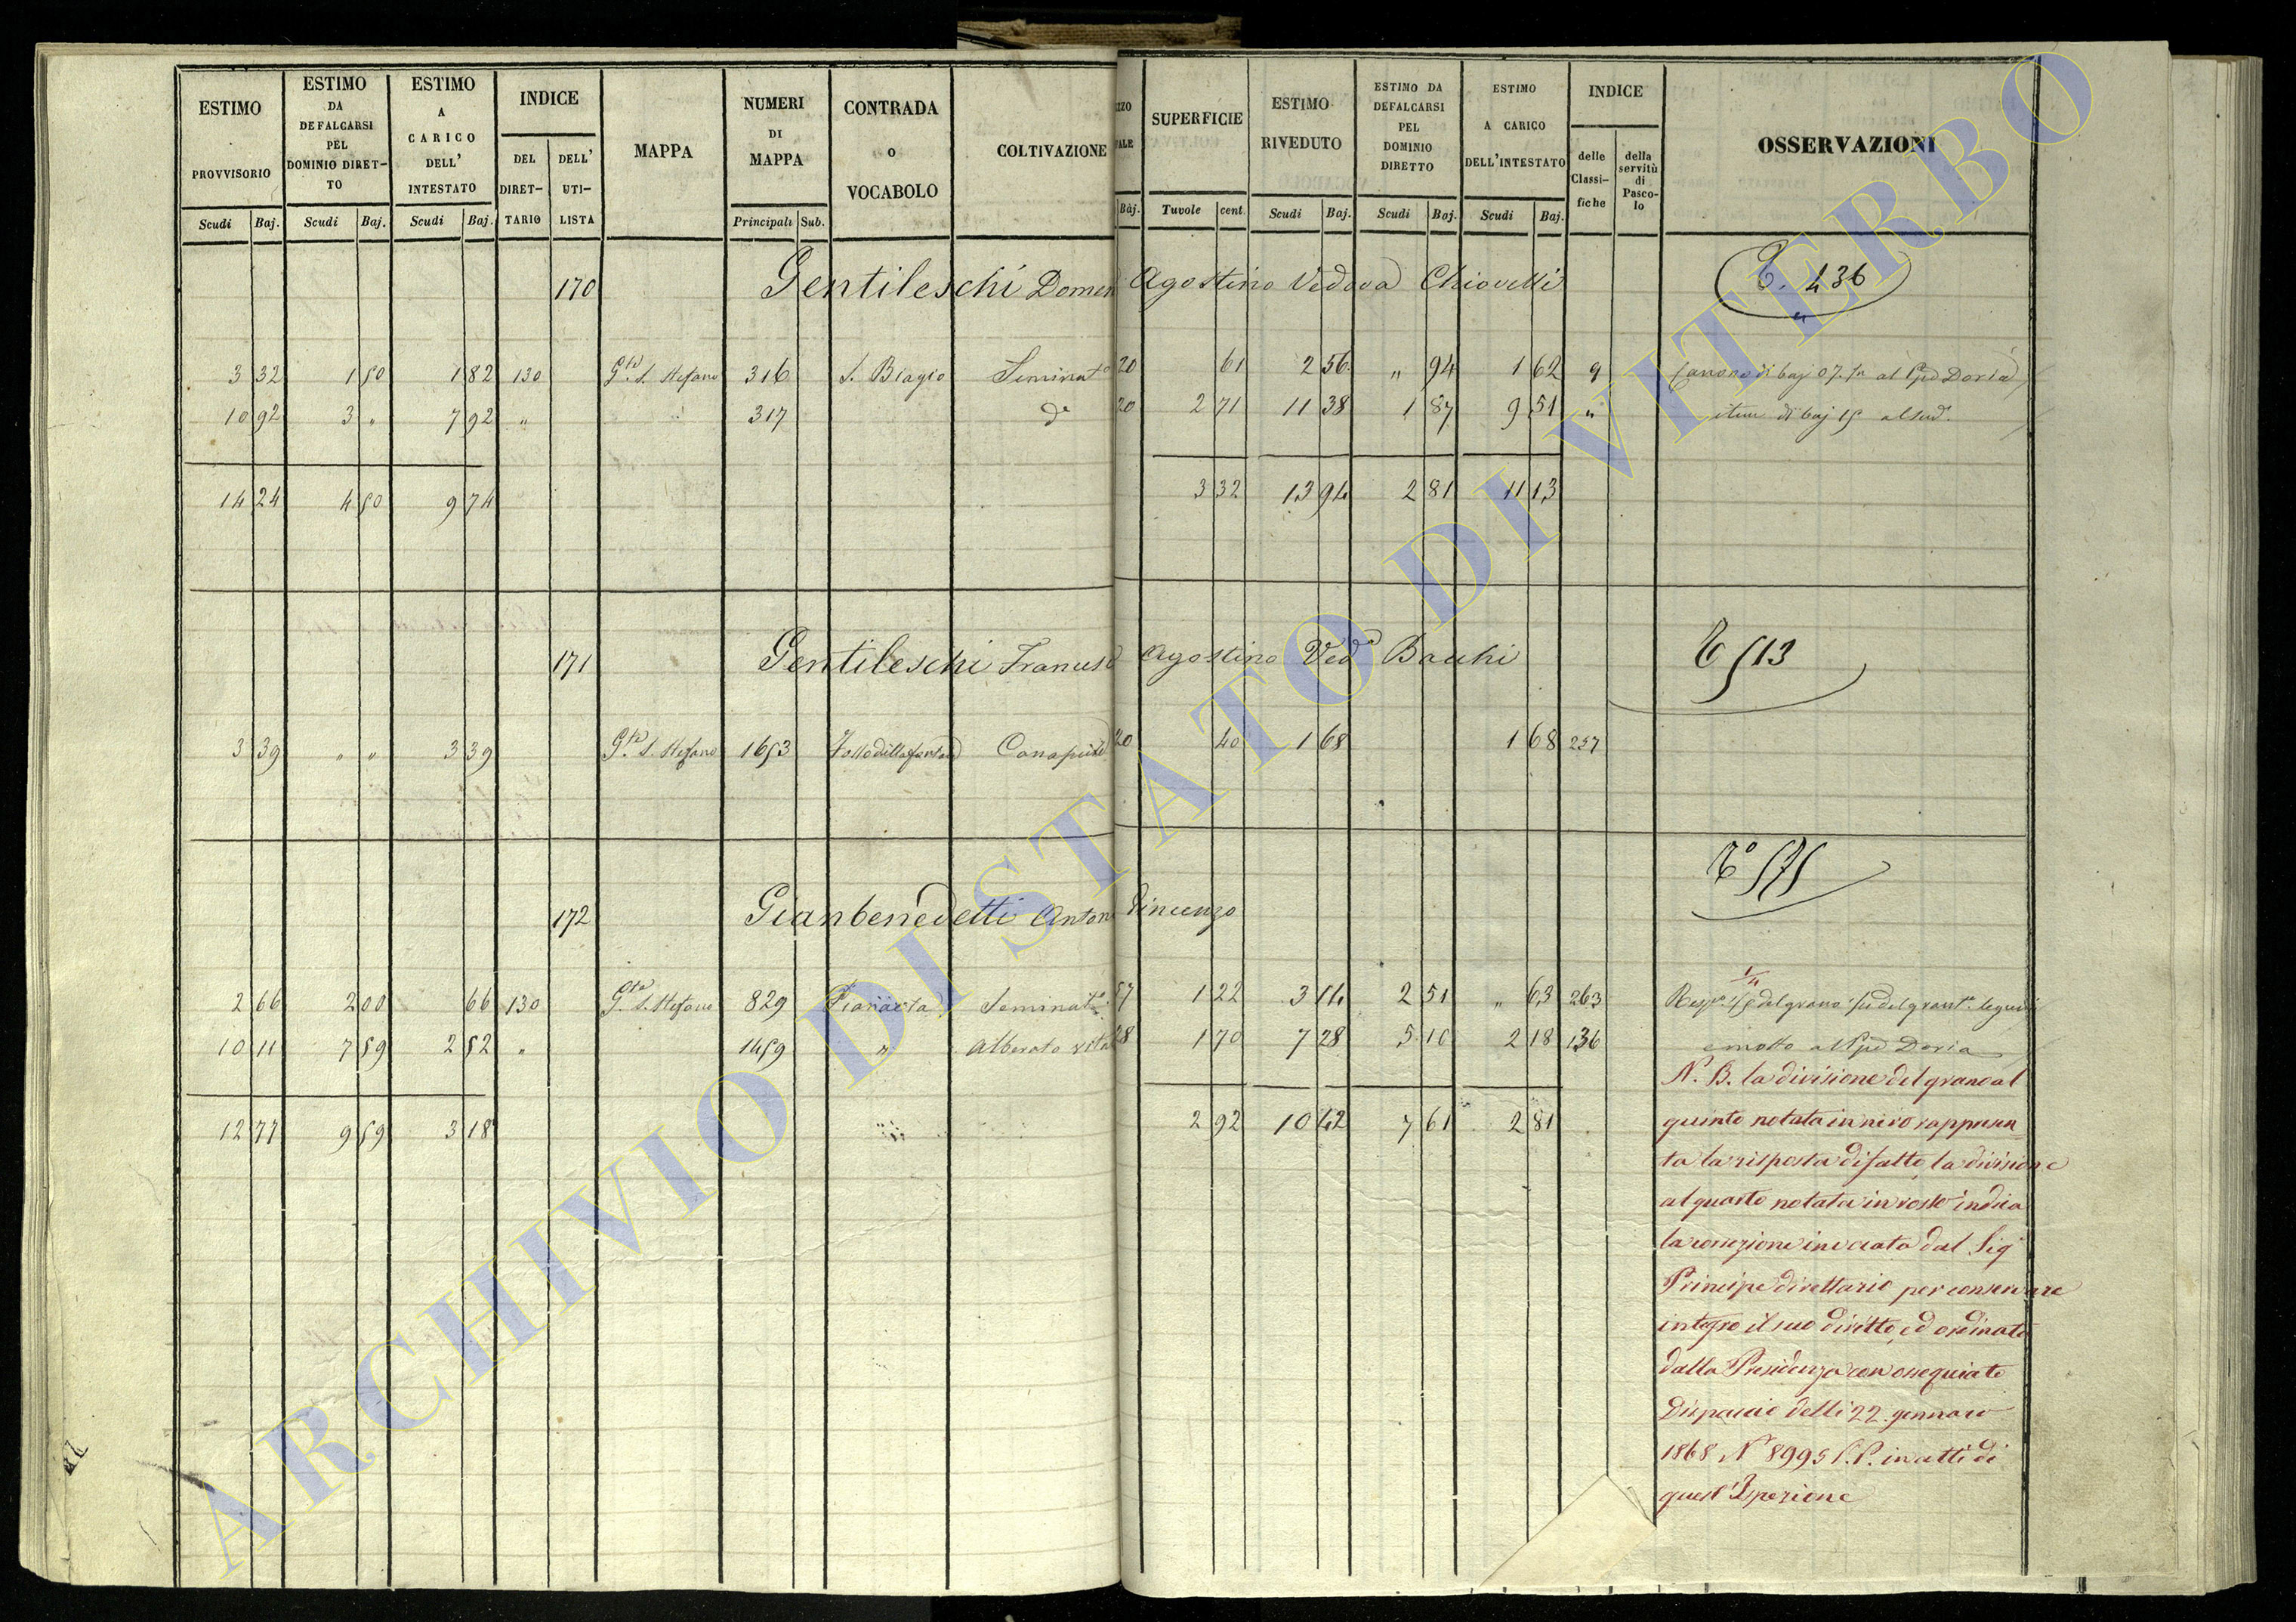 ESTIMO PROVVISORIO
ESTIMO DA DEFALCARSI PEL DOMINIO DIRET-TO
ESTIMO A CARICO DELL' INTESTATO
INDICE
DEL DIRET-TARIO
DELL' UTI-LISTA
MAPPA
NUMERI DI MAPPA
CONTRADA O VOCABOLO
COLTIVAZIONE
SUPERFICIE
ESTIMO RIVEDUTO
ESTIMO DA DEFALCARSI PEL DOMINIO DIRETTO
ESTIMO A CARICO DELL'INTESTATO
INDICE
delle Classi-fiche
della servitù di Pasco-lo
OSSERVAZIONI
Scudi Baj. Scudi Baj. Scudi Baj. Principali Sub. Baj. Tuvole cent. Scudi Baj. Scudi Baj. Scudi Baj.
170 Gentileschi Domen Agostino Vedova Chiovelli T. 436
3 32 1 50 1 82 130 Gta. S. Stefano 316 S. Biagio Seminato 20 61 2 56 " 94 1 62 9 Canone di baj 07 al Ppe Doria
10 92 3 " 7 92 " 317 do 20 2 71 11 38 1 87 9 51 " item di baj 15 al sud.
14 24 4 50 9 74 3 32 13 94 2 81 11 13
171 Gentileschi Francesc Agostino Veda Bacchi T 513
3 39 " " 3 39 Gta. S. Stefano 1653 Fosso della fontana Canapule 20 40 1 68 1 68 257
To 575
172 Gianbenedetti Anton Vincenzo
2 66 2 00 66 130 Gta. S. Stefano 829 Seminato 57 1 22 3 14 2 51 " 63 263 1/5 del grano
10 11 7 59 2 52 " 1459 " Alberato vitato 28 1 70 7 28 5 10 2 18 136 e mosto al Ppe Doria
12 77 9 59 3 18 2 92 10 42 7 61 2 81
N. B. la divisione del grano al
quinto notata in nero rappresen
ta la risposta di fatto, la divisione
al quarto notata in rosso indica
la correzione invocata dal Sig
Principe direttario per conservare
integro il suo diritto, ed ordinata
dalla Presidenza con ossequiato
Dispaccio delli 22 gennaro
1868 N° 8995 P.P. in atti di
quest'Ispezione
ARCHIVIO DI STATO DI VITERBO